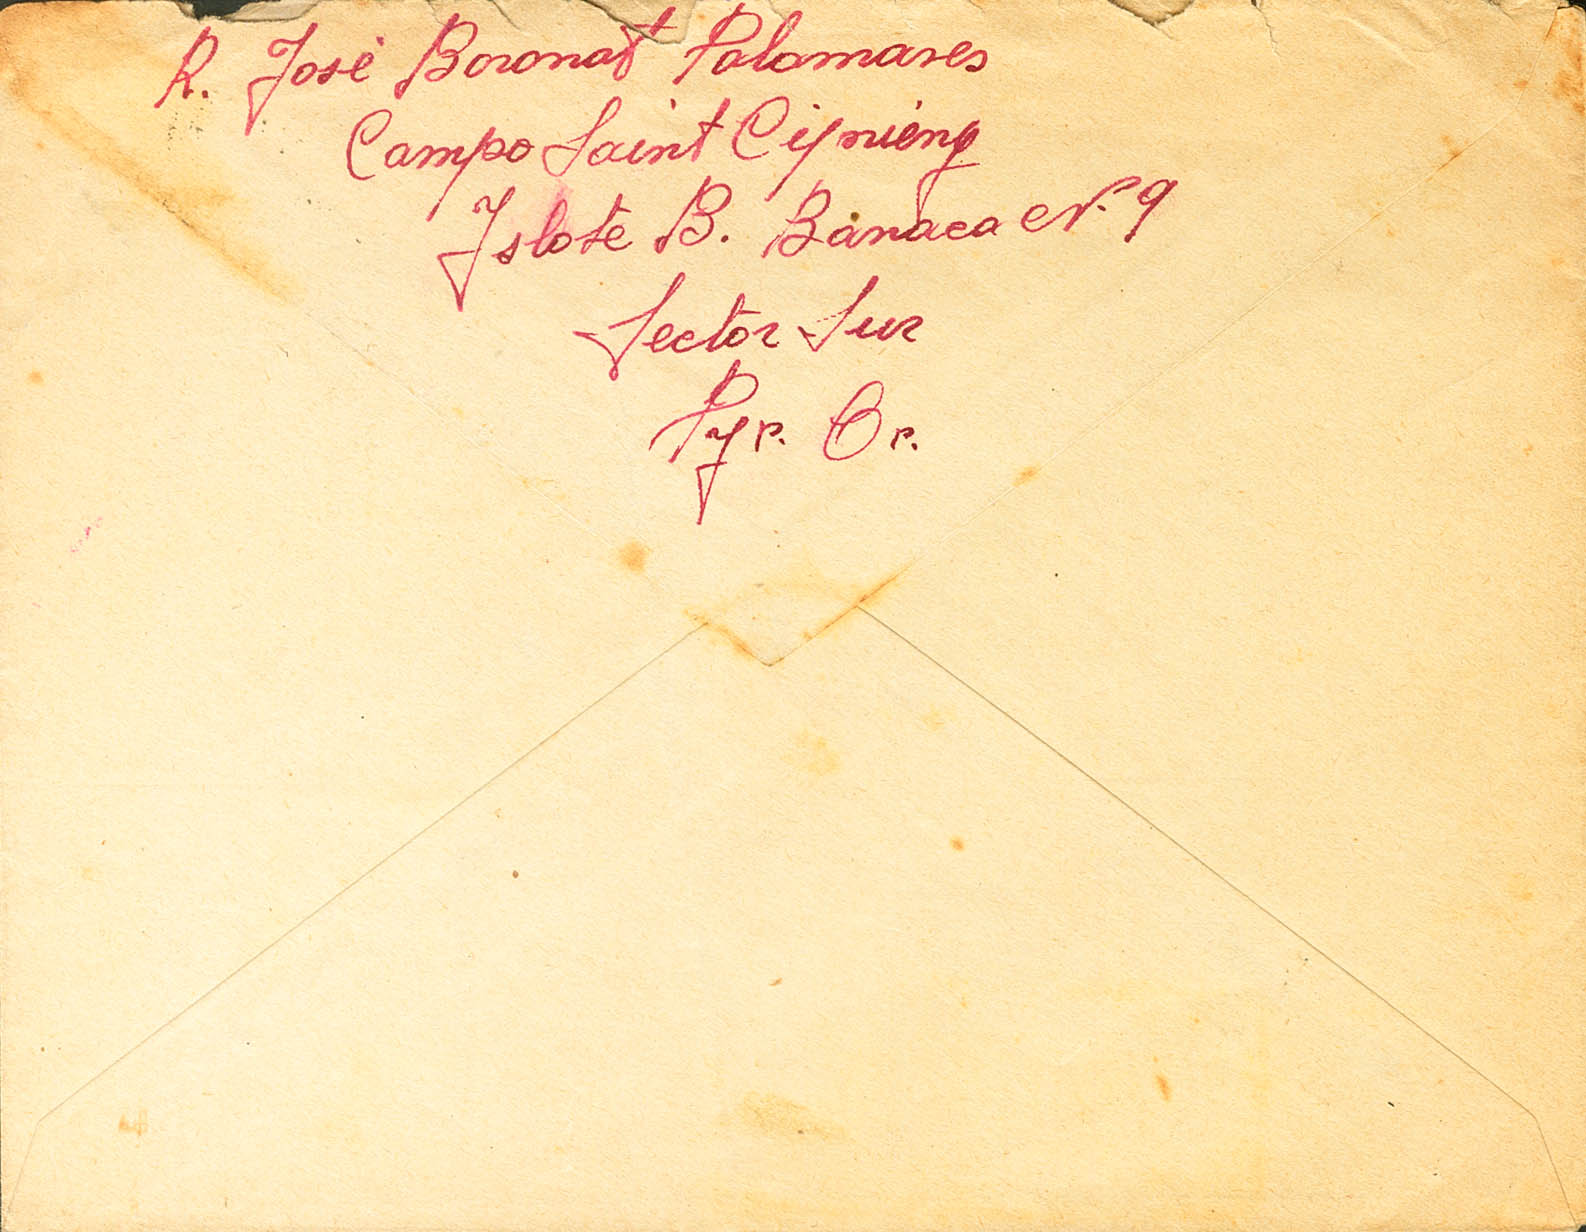 R. José Boronat Palomares
Campo Saint Cipriéng
Yslote B. Banaca Nº. 9
Sector Sur
Pyr. Or.